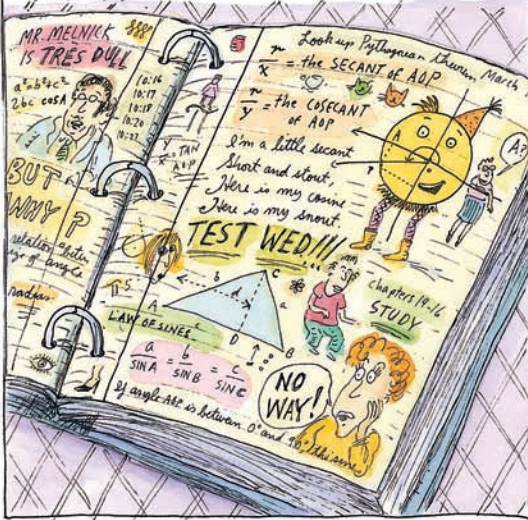 MR. MELNICK
IS TRÈS DULL
a²=b²+c²
2bc cosA
10:16
10:17
10:18
10:20
10:27
BUT
WHY?
relation
of angle
radius
Look up Pythagorean theorem March
r/x = the SECANT of AOP
r/y = the COSECANT
of AOP
y/x = TAN
AOP
I'm a little secant
Short and stout,
Here is my cosine
Here is my snout
A
P
A?
TEST WED!!!
chapters 14-16
STUDY
b
C
d
a
A
D
B
LAW OF SINES
a/SIN A = b/SIN B = c/SIN C
NO
WAY!
if angle ABP is between 0° and 90°, this sine